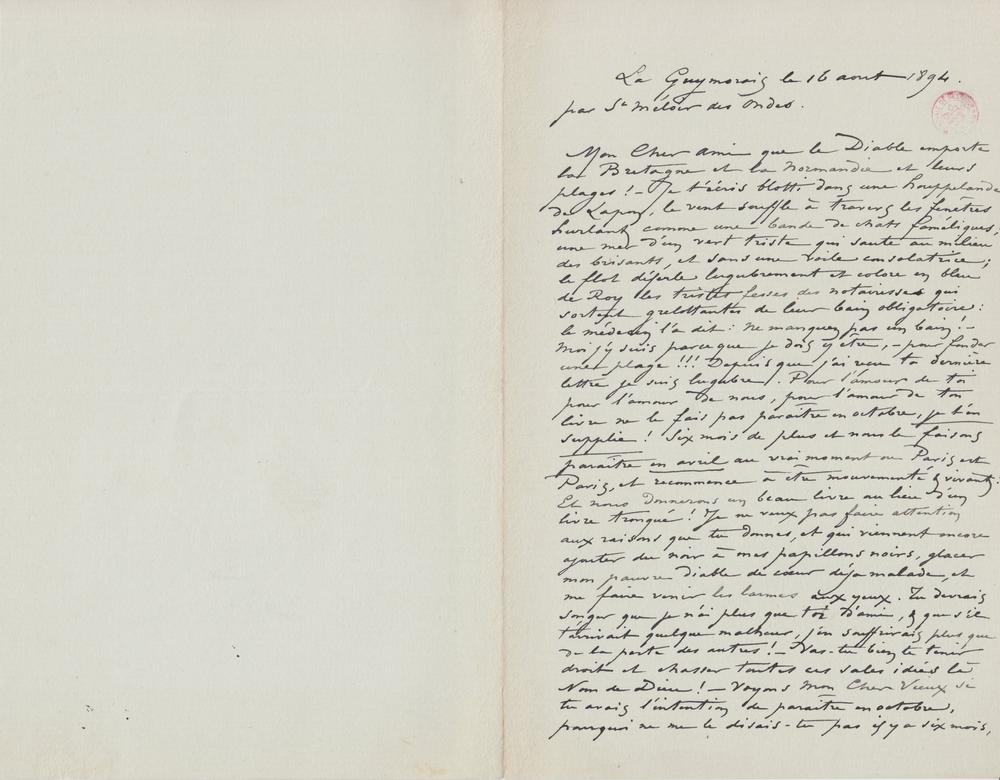 La Guymorais le 16 aout 1894.
par St Méloir des Ondes.
Mon Cher ami que le Diable emporte
la Bretagne et la Normandie et leurs
plages ! — Je t'écris blotti dans une houppelande
de Lapon, le vent souffle à travers les fenêtres
hurlant comme une bande de chats faméliques,
une mer d'un vert triste qui saute au milieu
des brisants, et sans une voile consolatrice ;
le flot déferle lugubrement et colore en bleu
de Roy les tristes fesses des notairesses qui
sortent grelottantes de leur bain obligatoire :
le médecin l'a dit : ne manquez pas un bain ! —
Moi j'y suis parce que je dois y être, — pour fonder
une plage !!! Depuis que j'ai reçu ta dernière
lettre je suis lugubre. Pour l'amour de toi
pour l'amour de nous, pour l'amour de ton
livre ne le fais pas paraître en octobre, je t'en
supplie ! Six mois de plus et nous le faisons
paraître en avril au vrai moment ou Paris est
Paris, et recommence à être mouvementé & vivant :
Et nous donnerons un beau livre au lieu d'un
livre tronqué ! Je ne veux pas faire attention
aux raisons que tu donnes, et qui viennent encore
ajouter du noir à mes papillons noirs, glacer
mon pauvre diable de cœur déja malade, et
me faire venir les larmes aux yeux. Tu devrais
songer que je n'ai plus que toi d'ami, & que s'il
t'arrivait quelque malheur, j'en souffrirais plus que
de la perte des autres ! — Vas-tu bien te tenir
droit et chasser toutes ces sales idées là
Nom de Dieu ! — Voyons Mon Cher Vieux si
tu avais l'intention de paraître en octobre,
pourquoi ne me le disais-tu pas il y a six mois,